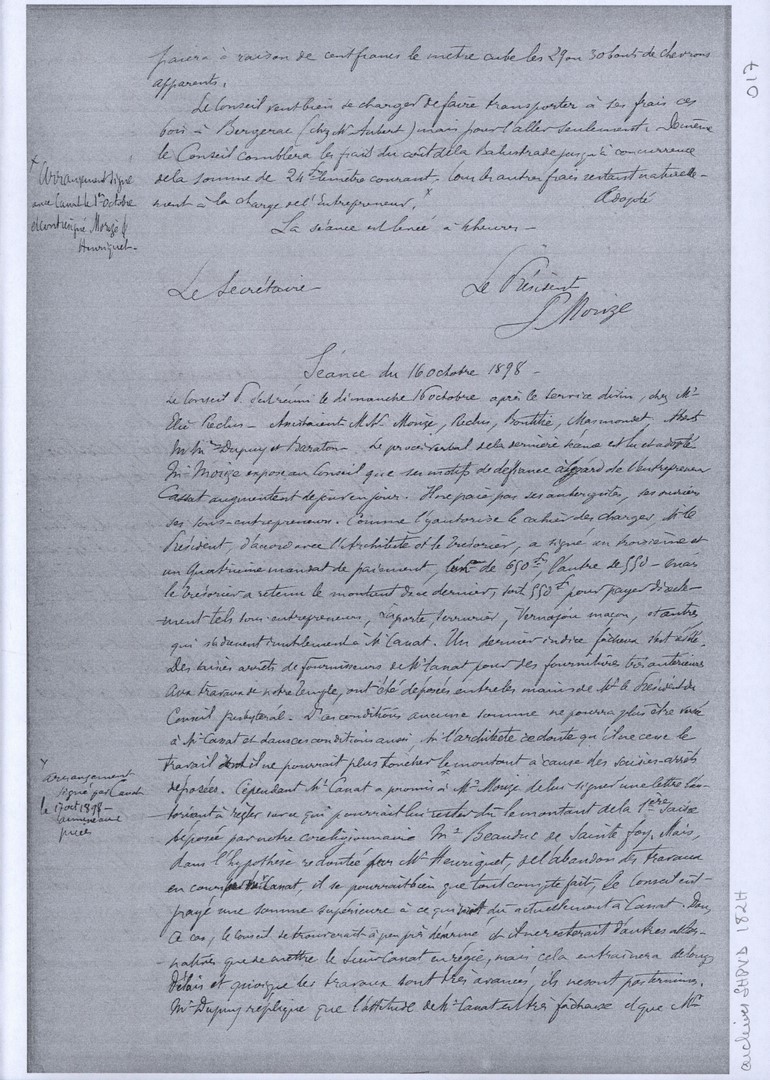 017
paiera à raison de cent francs le mètre cube les 29 ou 30 bouts de chevrons
apparents.
Le Conseil veut bien se charger de faire transporter à ses frais ces
bois à Bergerac (chez Mr Aubert) mais pour l'aller seulement. De même
le Conseil comblera les frais du coût de la balustrade jusqu'à concurrence
de la somme de 24 fcs le mètre courant. Tous les autres frais restant naturelle-
ment à la charge de l'Entrepreneur. x Adopté
x Arrangement signé
avec Canat le 1er Octobre
et contresigné Mouze &
Henriquet-
La séance est levée à heures -
Le Secrétaire
Le Président
Mouze
Séance du 16 octobre 1898 -
Le Conseil P. s'est réuni le dimanche 16 octobre après le service divin, chez Mr
Elie Reclus - Assistaient M.M. Mouze, Reclus, Masmondet,
M.M. Dupuy et Baraton - Le procès verbal de la dernière séance est lu et adopté
Mr Mouze expose au Conseil que ses motifs de défiance à l'égard de l'entrepreneur
Canat augmentent de jour en jour. Il ne paie pas ses aubergistes, ses ouvriers
ses sous-entrepreneurs. Comme l'y autorise le cahier des charges, Mr le
Président, d'accord avec l'Architecte et le Trésorier, a signé un troisième et
un quatrième mandat de paiement, l'un de 650 fcs l'autre de 550 - mais
le Trésorier a retenu le montant de ce dernier, soit 550 fcs pour payer directe-
ment tels sous-entrepreneurs, Laporte, serrurier, Vernajou maçon, et autres,
qui s'adressent inutilement à Mr Canat. Un dernier indice fâcheux s'est
Des saisies arrêts de fournisseurs de Mr Canat pour des fournitures très antérieures
aux travaux de notre temple, ont été déposées entre les mains de Mr le Président du
Conseil presbytéral - Dans ces conditions aucune somme ne pourra plus être versée
à Mr Canat et dans ces conditions aussi Mr l'architecte redoute qu'il ne cesse le
travail dont il ne pourrait plus toucher le montant à cause des saisies-arrêts
déposées. Cependant Mr Canat a promis à Mr Mouze de lui signer une lettre l'au-
torisant à régler sur ce qui pourrait lui rester dû le montant de la 1ere saisie
x arrangement
signé par Canat
le 17 oct 1898 -
déposée par notre coreligionnaire Mr Beauduc de Sainte foy. Mais,
dans l'hypothèse redoutée par Mr Henriquet, de l'abandon des travaux
en cours par Mr Canat, il se pourrait bien que tout compte fait, le Conseil eut
payé une somme supérieure à ce qui est dû actuellement à Canat. Dans
ce cas, le Conseil se trouverait à peu près désarmé et il ne resterait d'autres alter-
natives que de mettre le sieur Canat en régie, mais cela entrainera de longs
délais et quoique les travaux sont très avancés, ils ne sont pas terminés.
Mr Dupuy réplique que l'attitude de Mr Canat est très fâcheuse et que Mr
archives SHPVD 182H